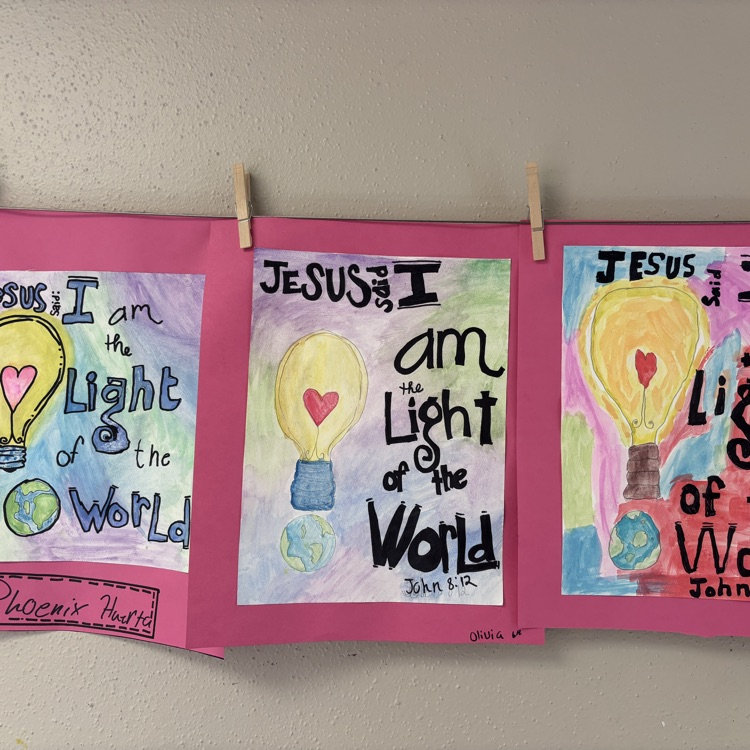 JESUS said: I am
the
Light
of the
World
Phoenix Huerta
JESUS said I
am
the
Light
of the
World
John 8:12
Olivia
JESUS Said
of
John